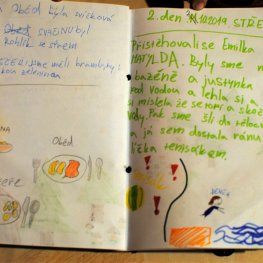 Oběd byla svíčková
Oběd SVAČINU byl
Rohlík se sírem
VEČEŘI jsme měli brambory
kou zeleninou
Oběd
2. den 2.10.2019 STŘE
PŘISTĚHOVALI SE EMILKA
MATYLDA. BYLY SME N
BAZÉNĚ a JUSTYNKA
POD VODOU a LEHLA SI A
SI MISLELA ŽE SE TOPÍ A SKOČ
VODY. Pak SME ŠLI do TĚLOC
A JÁ SEM DOSTALA RÁNU
LÍČKA TENISÁKEM.